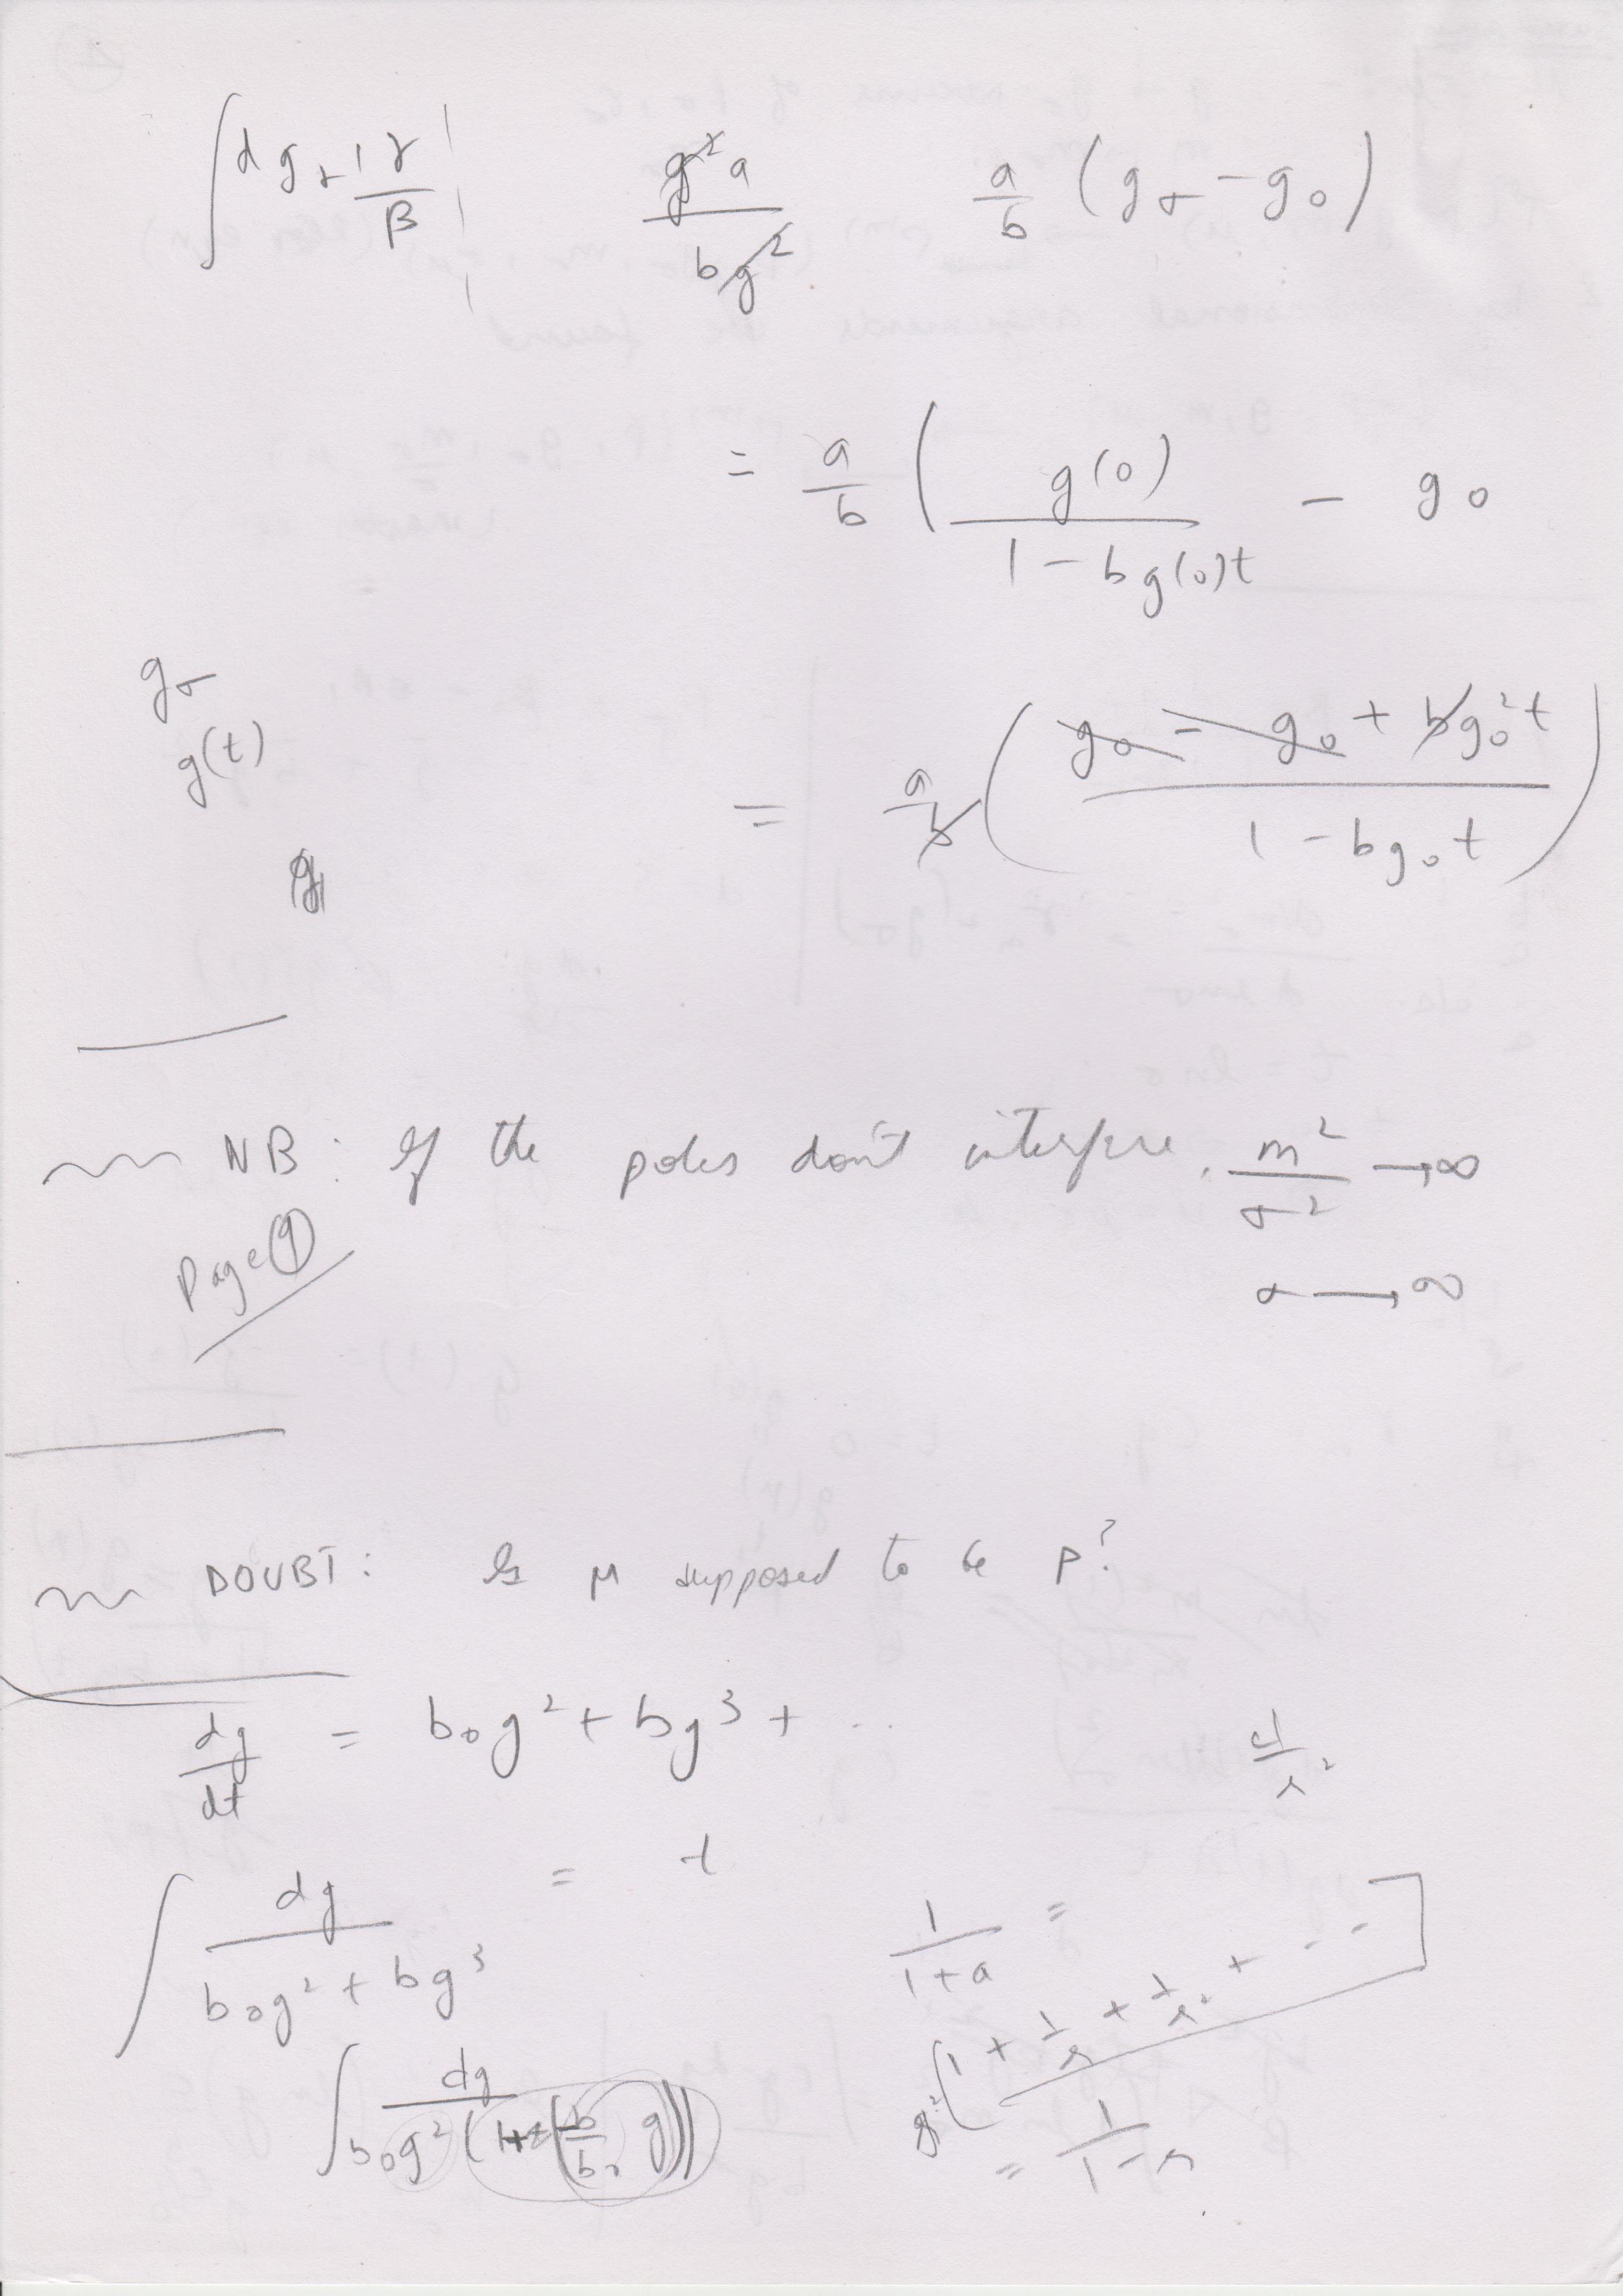 ∫ dg_σ | γ/β | g²a / bg² a/b (g_σ - g₀)
= a/b ( g(0) / 1 - bg(0)t - g₀
g_σ
g(t)
= a/b ( g₀ - g₀ + bg₀²t / 1 - bg₀t )
g₁
NB: If the poles don't interfere. m²/σ² → ∞
Page 9
σ → ∞
DOUBT: Is μ supposed to be p?
dg/dt = b₀g² + bg³ + ...
∫ dg / b₀g² + bg³ = t
1 / 1+a =
g² [ 1 + 1/r + 1/r² + ... ]
∫ dg / b₀g² (1+ (b/b₀ g))
= 1 / 1-r